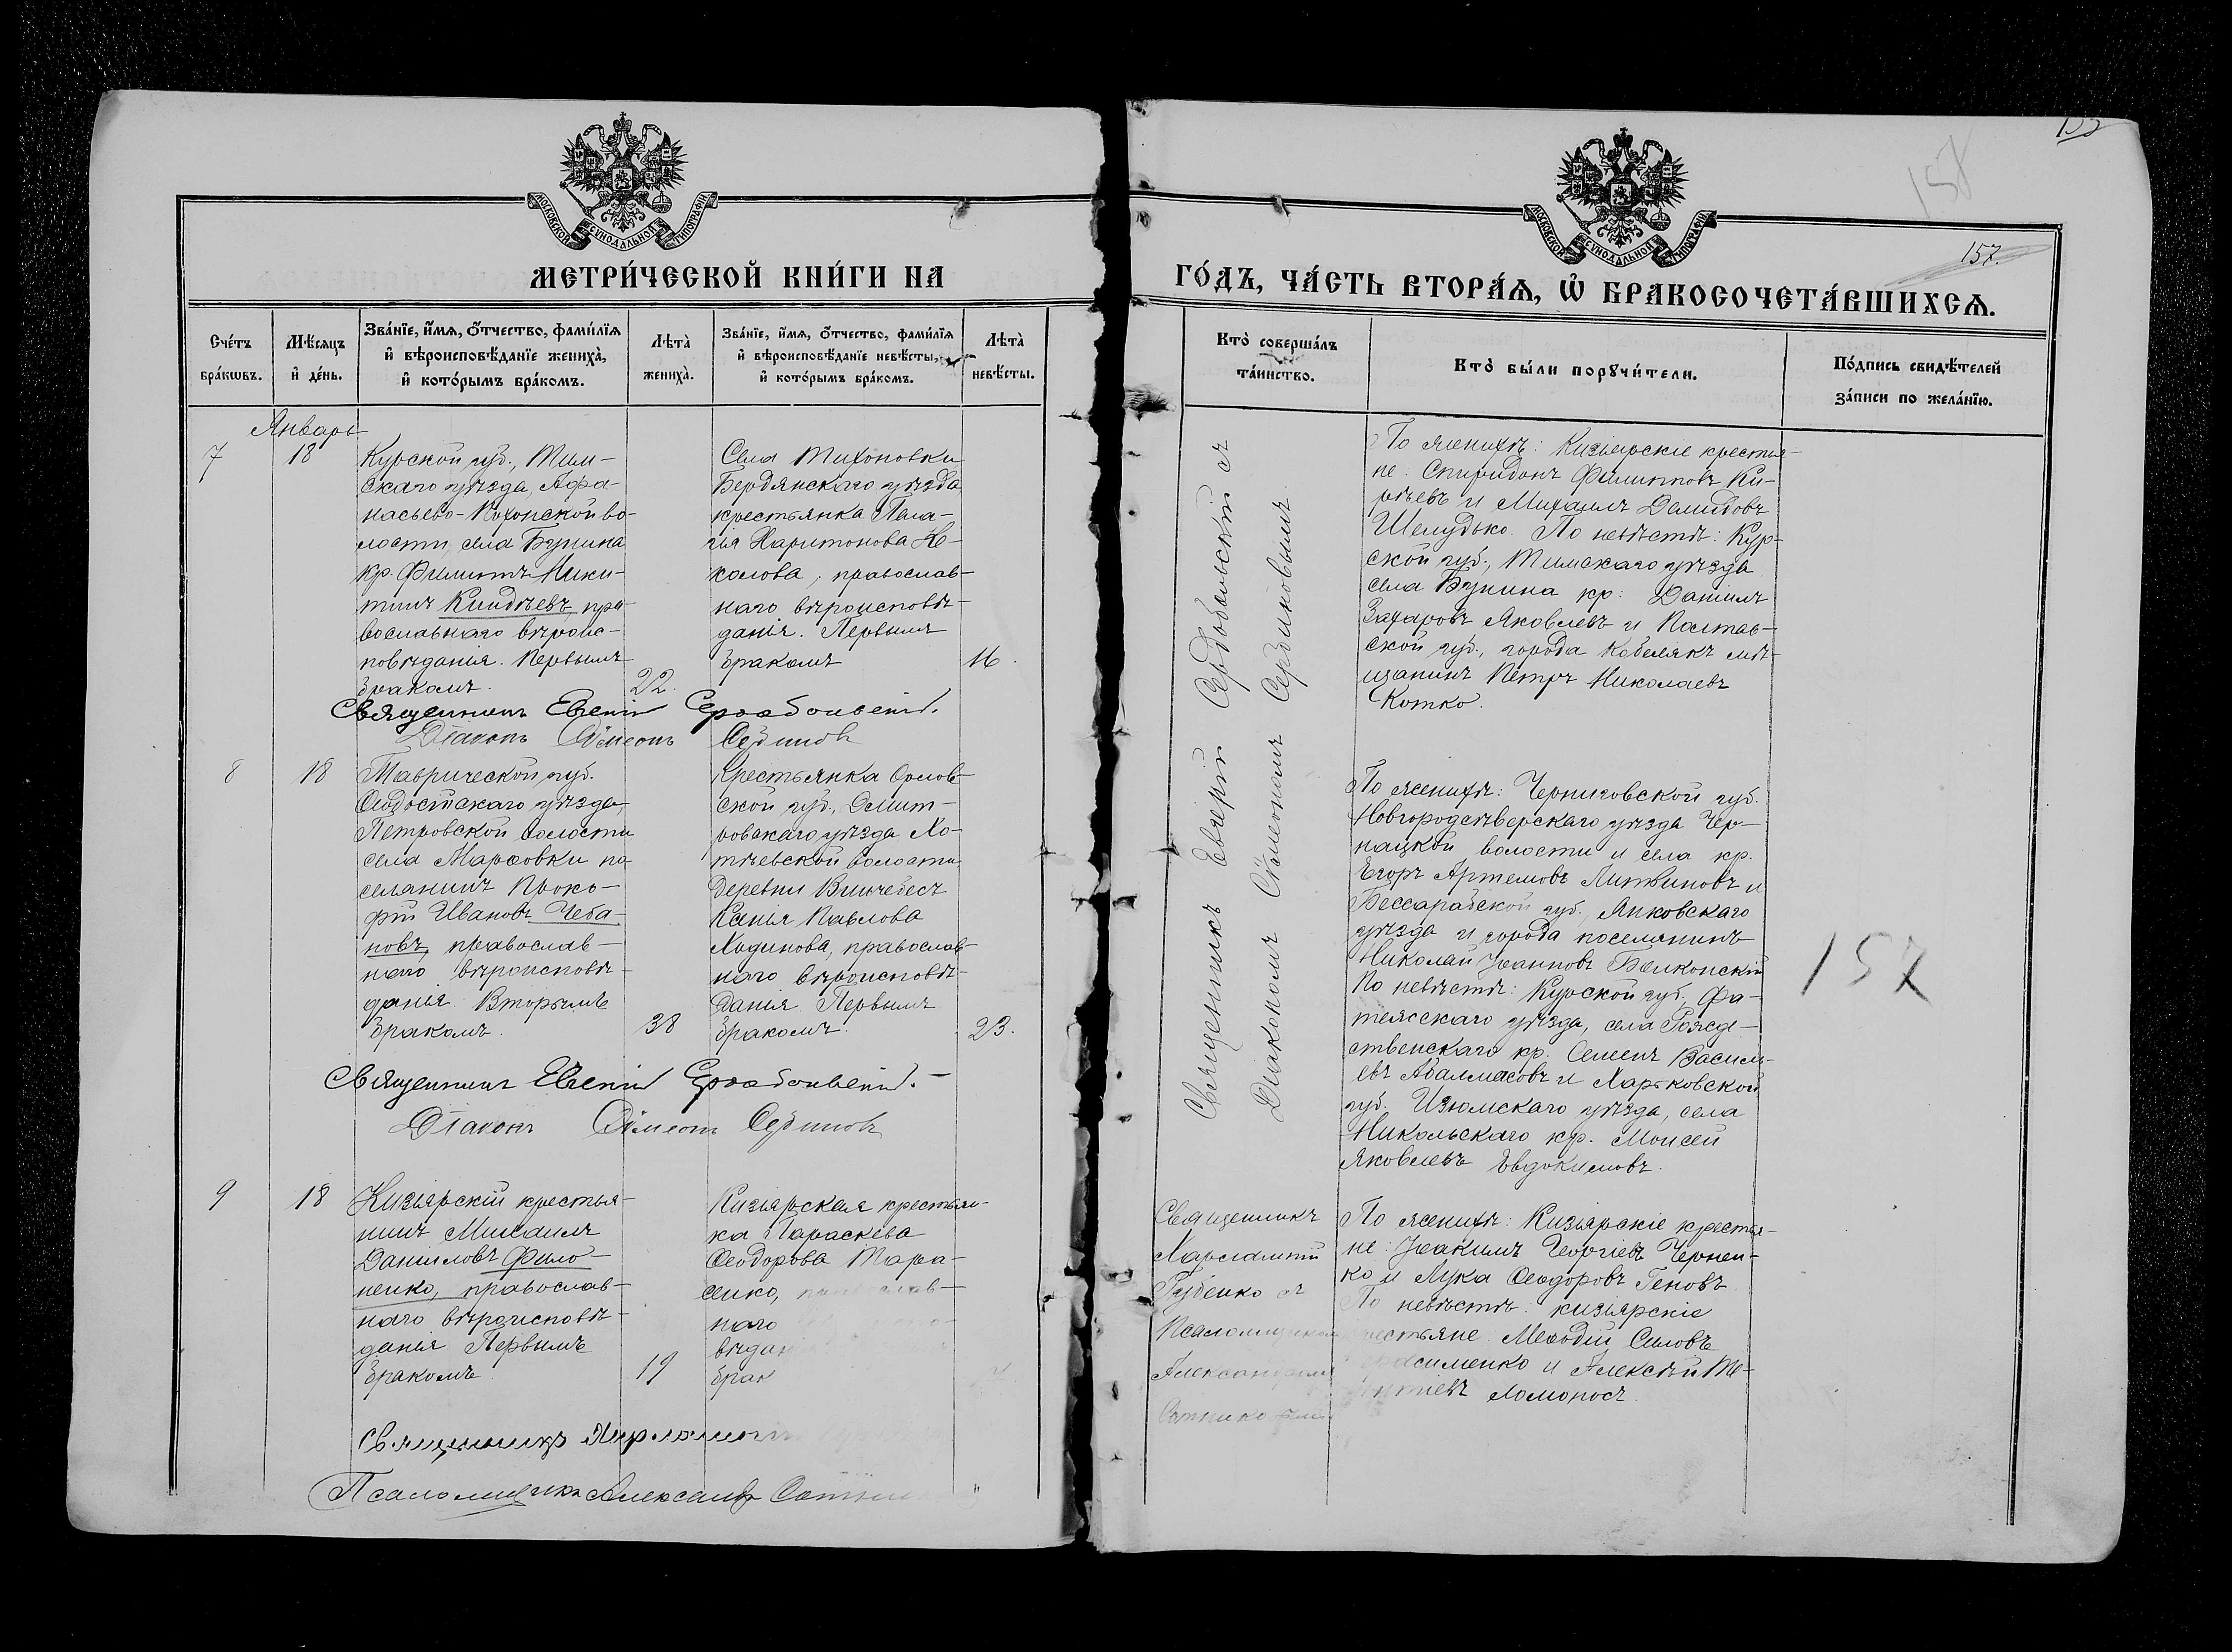 153
158
МОСКОВСКОЙ СѴНОДАЛЬНОЙ ТИПОГРАФІИ
МОСКОВСКОЙ СѴНОДАЛЬНОЙ ТИПОГРАФІИ
157.
МЕТРИ́ЧЕСКОЙ КНИ́ГИ НА
ГО́ДЪ, ЧА́СТЬ ВТОРА́Ѧ, Ѡ҆ БРАКОСОЧЕТА́ВШИХСѦ.
Сче́тъ
бра́кѡвъ.
Мѣ́сяцъ
и҆ де́нь.
Зва́нїе, и҆́мѧ, ѻ҆́тчество, фами́лїѧ
и҆ вѣроисповѣ́данїе жениха̀,
и҆ кото́рымъ бра́комъ.
Лѣта̀
жениха̀.
Зва́нїе, и҆́мѧ, ѻ҆́тчество, фами́лїѧ
и҆ вѣроисповѣ́данїе невѣ́сты,
и҆ кото́рымъ бра́комъ.
Лѣта̀
невѣ́сты.
Кто̀ соверша́лъ
та́инство.
Кто̀ бы́ли порꙋчи́тели.
По́дпись свидѣ́телей
за́писи по жела́нїю.
Январь
7
18
Курской губ., Тим-
скаго уѣзда, Афа-
насьево-Похонской во-
лости, села Бунина
кр. Филиппъ Ники-
тинъ Киндѣевъ, пра-
вославнаго вѣроис-
повѣданія. Первымъ
бракомъ.
22.
Села Тихоновки
Бердянскаго уѣзда
крестьянка Пела-
гія Харитонова
колова, православ-
наго вѣроисповѣ-
данія. Первымъ
бракомъ
16.
Священникъ Евгеній Сердобольскій съ
Діакономъ Сѵмеономъ Сербиновымъ
По женихѣ: Кизіярскіе крестья-
не: Спиридонъ Филипповъ Ки-
рѣевъ и Михаилъ Демидовъ
Шелудько. По невѣстѣ: Кур-
ской губ., Тимскаго уѣзда
села Бунина кр: Даніилъ
Захаровъ Яковлевъ и Полтав-
ской губ., города Кобелякъ мѣ-
щанинъ Петръ Николаевъ
Котко.
Священникъ Евгеній Сердобольскій.
Діаконъ Сѵмеонъ Сербиновъ
8
18
Таврической губ.
Ѳеодосійскаго уѣзда,
Петровской волости
села Марфовки по-
селянинъ Проко-
фій Ивановъ Чеба-
новъ, православ-
наго вѣроисповѣ-
данія Вторымъ
бракомъ.
38
Крестьянка Орлов-
ской губ., Дмит-
ровскаго уѣзда Хо-
тѣевской волости
деревни
Ксенія Павлова
Ходинова, православ-
наго вѣроисповѣ-
данія Первымъ
бракомъ.
23.
По женихѣ: Черниговской губ.
Новгородсѣверскаго уѣзда Чер-
нацкой волости и села кр.
Егоръ Артемовъ Литвиновъ и
Бессарабской губ., Янковскаго
уѣзда и города поселянинъ
Николай Іоанновъ Белконскій
По невѣстѣ: Курской губ., Фа-
тежскаго уѣзда, села Рожде-
ственскаго кр. Семенъ Василь-
евъ Абалмасовъ и Харьковской
губ. Изюмскаго уѣзда, села
Никольскаго кр. Моисей
Яковлевъ Евдокимовъ.
157
Священникъ Евгеній Сердобольскій.
Діаконъ Сѵмеонъ Сербиновъ
9
18
Кизіярскій крестья-
нинъ Михаилъ
Даниловъ Фило-
ненко, православ-
наго вѣроисповѣ-
данія Первымъ
бракомъ.
19
Кизіярская крестьян-
ка Параскева
Ѳеодорова Тара-
сенко, православ-
наго
вѣдан
брак
Священникъ
Харлампій
Рубенко съ
Псаломщикомъ
Александромъ
По женихѣ: Кизіярскіе крестья-
не: Іоакимъ Георгіевъ Чернен-
ко и Лука Ѳеодоровъ Геновъ
По невѣстѣ: кизіярскіе
крестьяне: Меѳодій Силовъ
Герасименко и Алексѣй Те-
рентіевъ Ломоносъ.
Священникъ Харламп
Псаломщикъ Александр Сотни